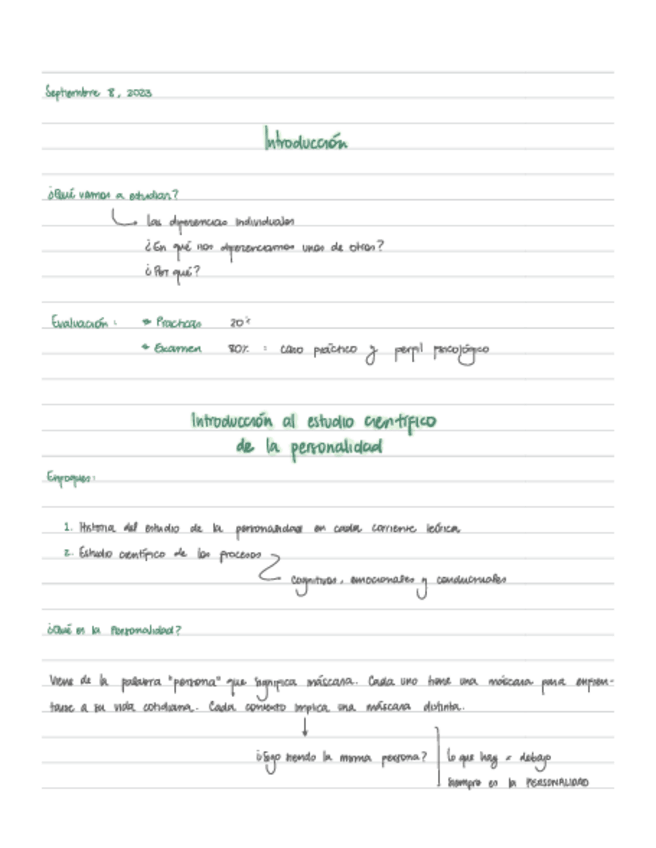 Septiembre 8, 2023
Introducción
¿Qué vamos a estudiar?
las diferencias individuales
¿En qué nos diferenciamos unos de otros?
¿Por qué?
Evaluación: * Prácticas 20%
* Examen 80% : caso práctico y perfil psicológico
Introducción al estudio científico
de la personalidad
Enfoques:
1. Historia del estudio de la personalidad en cada corriente teórica
2. Estudio científico de los procesos
cognitivos, emocionales y conductuales
¿Qué es la Personalidad?
Viene de la palabra "persona" que significa máscara. Cada uno tiene una máscara para enfren-
tarse a su vida cotidiana. Cada contexto implica una máscara distinta.
¿Sigo siendo la misma persona? lo que hay debajo
siempre es la PERSONALIDAD